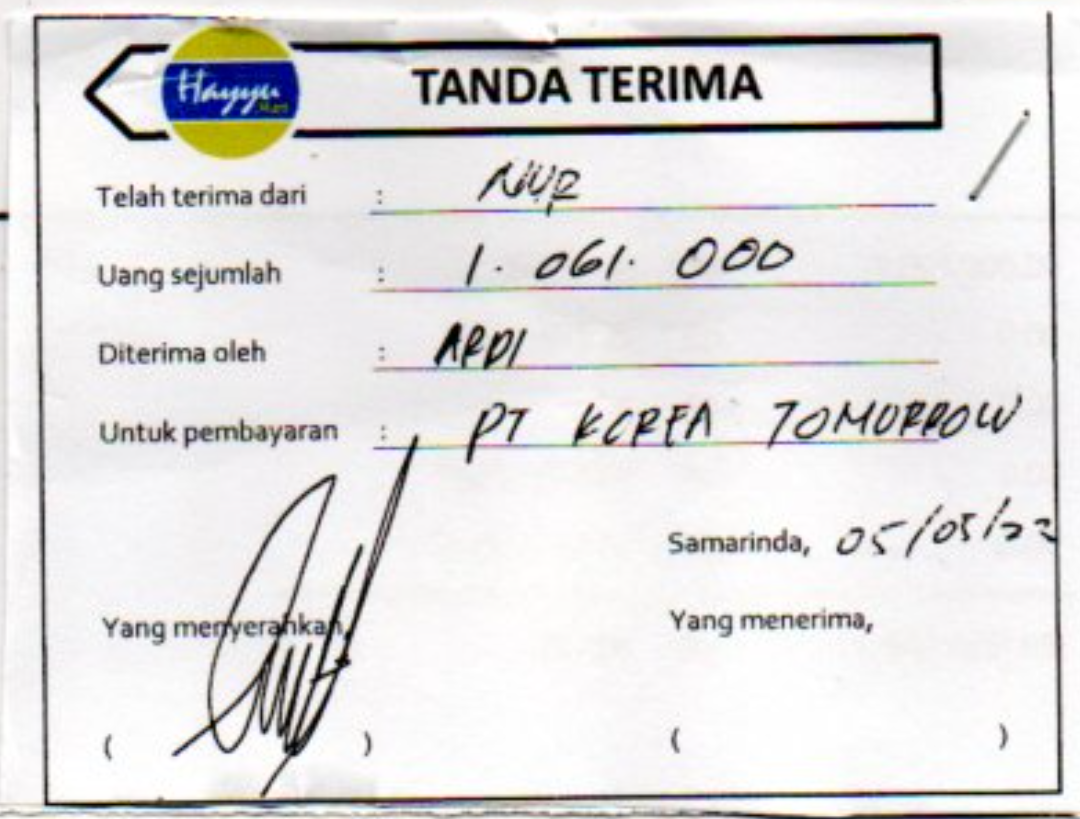 Hayyu
Mart
TANDA TERIMA
Telah terima dari : NUR
Uang sejumlah : 1. 061. 000
Diterima oleh : ARDI
Untuk pembayaran : PT KOREA TOMORROW
Samarinda, 05/05/23
Yang menyerahkan,
Yang menerima,
( ) ( )